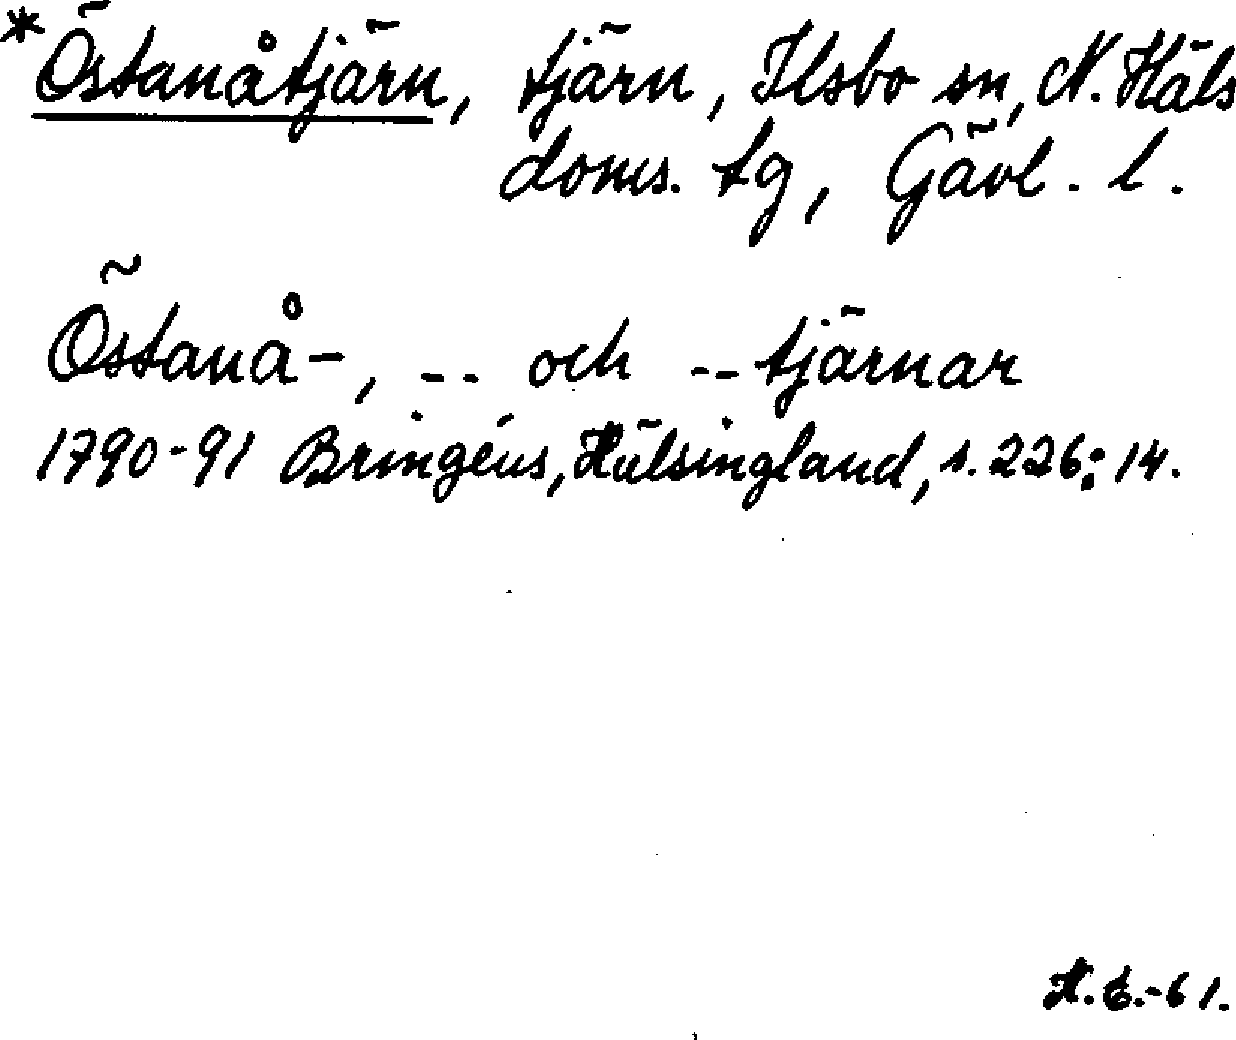 *Östanåtjärn, tjärn, Ilsbo sn, N. Häls
doms. tg, Gävl. l.
Östanå-, -- och --tjärnar
1790-91 Bringéus, Hälsingland, s. 226:14.
-61.